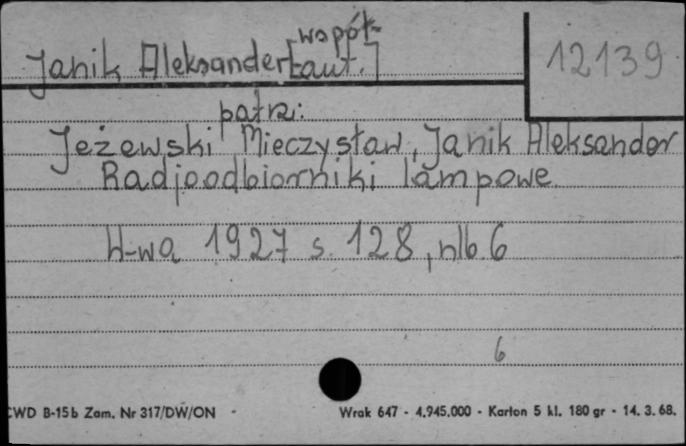 współ-
Janik Aleksander [aut.]
12139
patrz:
Jeżewski Mieczysław, Janik Aleksander
Radjoodbiorniki lampowe
W-wa 1927 s. 128, nlb. 6
6
CWD B-15b Zam. Nr 317/DW/ON - Wrak 647 - 4.945.000 - Karton 5 kl. 180 gr - 14. 3. 68.